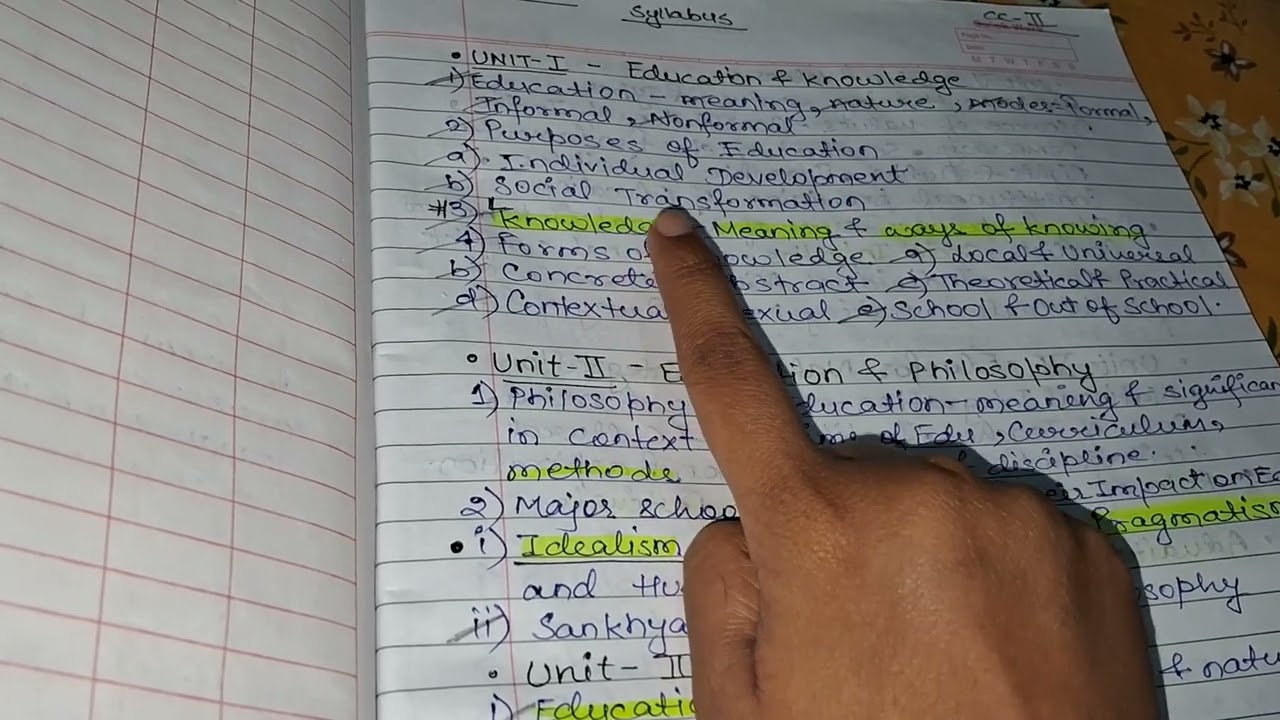 Syllabus
CC-II
• UNIT-I - Education & Knowledge
1) Education - meaning, nature, modes-Formal,
Informal, Nonformal
2) Purposes of Education
a). Individual Development
b) Social Transformation
#3) Knowledge - Meaning & ways of knowing
4) Forms of Knowledge a) Local & Universal
b) Concrete Abstract c) Theoretical & Practical
d) Contextual e) School & Out of School.
• Unit-II - Education & Philosophy
1) Philosophy Education - meaning & significan
in context of Edu, Curriculum,
methods discipline.
2) Major Impact on
• i) Idealism Pragmatism
and
ii) Sankhya
• Unit- &
i)